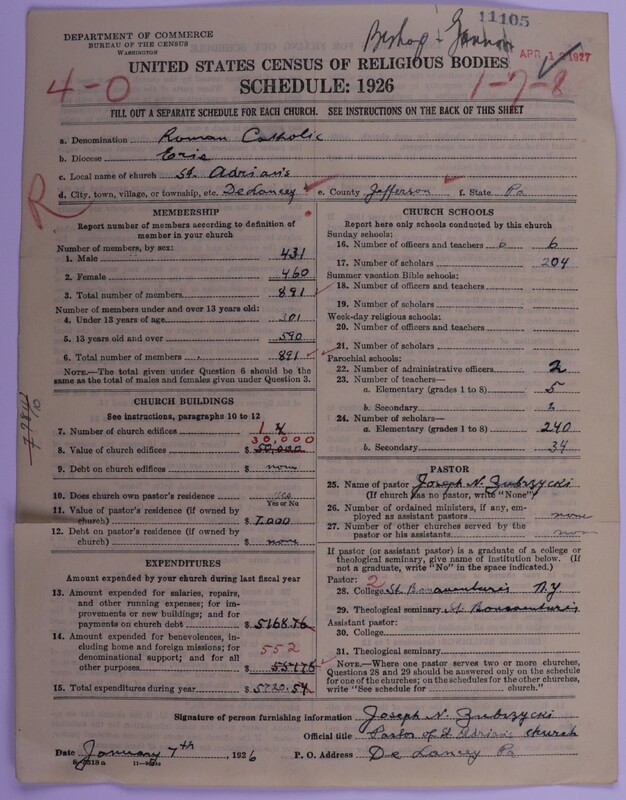 DEPARTMENT OF COMMERCE
BUREAU OF THE CENSUS
WASHINGTON
11105
Bishop + Gannon
APR 12 1927
UNITED STATES CENSUS OF RELIGIOUS BODIES
4-0
SCHEDULE: 1926
1-7-8
FILL OUT A SEPARATE SCHEDULE FOR EACH CHURCH. SEE INSTRUCTIONS ON THE BACK OF THIS SHEET
a. Denomination Roman Catholic
b. Diocese Erie
c. Local name of church St. Adrian's
R
d. City, town, village, or township, etc. De Lancey e. County Jefferson f. State Pa
MEMBERSHIP
Report number of members according to definition of
member in your church
Number of members, by sex:
1. Male 431
2. Female 460
3. Total number of members 891
Number of members under and over 13 years old:
4. Under 13 years of age 301
5. 13 years old and over 590
6. Total number of members 891
NOTE.—The total given under Question 6 should be the
same as the total of males and females given under Question 3.
CHURCH BUILDINGS
See instructions, paragraphs 10 to 12
7. Number of church edifices 1
30,000
8. Value of church edifices $ 50,000
9. Debt on church edifices $ none
10. Does church own pastor's residence yes
Yes or No
11. Value of pastor's residence (if owned by
church) $ 7,000
12. Debt on pastor's residence (if owned by
church) $ none
EXPENDITURES
Amount expended by your church during last fiscal year
13. Amount expended for salaries, repairs,
and other running expenses; for im-
provements or new buildings; and for
payments on church debt $ 5168.76
14. Amount expended for benevolences,
including home and foreign missions; for
denominational support; and for all
other purposes $ 551.78
552
15. Total expenditures during year $ 5720.54
CHURCH SCHOOLS
Report here only schools conducted by this church
Sunday schools:
16. Number of officers and teachers 6 6
17. Number of scholars 204
Summer vacation Bible schools:
18. Number of officers and teachers
19. Number of scholars
Week-day religious schools:
20. Number of officers and teachers
21. Number of scholars
Parochial schools:
22. Number of administrative officers 2
23. Number of teachers—
a. Elementary (grades 1 to 8) 5
b. Secondary
24. Number of scholars—
a. Elementary (grades 1 to 8) 240
b. Secondary 34
PASTOR
25. Name of pastor Joseph N. Zubrzycki
(If church has no pastor, write "None")
26. Number of ordained ministers, if any, em-
ployed as assistant pastors none
27. Number of other churches served by the
pastor or his assistants none
If pastor (or assistant pastor) is a graduate of a college or
theological seminary, give name of institution below. (If
not a graduate, write "No" in the space indicated.)
Pastor: 2
28. College St. Bonaventure's N.Y.
29. Theological seminary St. Bonaventure's
Assistant pastor:
30. College
31. Theological seminary
NOTE.—Where one pastor serves two or more churches,
Questions 28 and 29 should be answered only on the schedule
for one of the churches; on the schedules for the other churches,
write "See schedule for church."
Signature of person furnishing information Joseph N. Zubrzycki
Official title Pastor of St Adrian's church
Date January 7th, 1926 P. O. Address De Lancey Pa